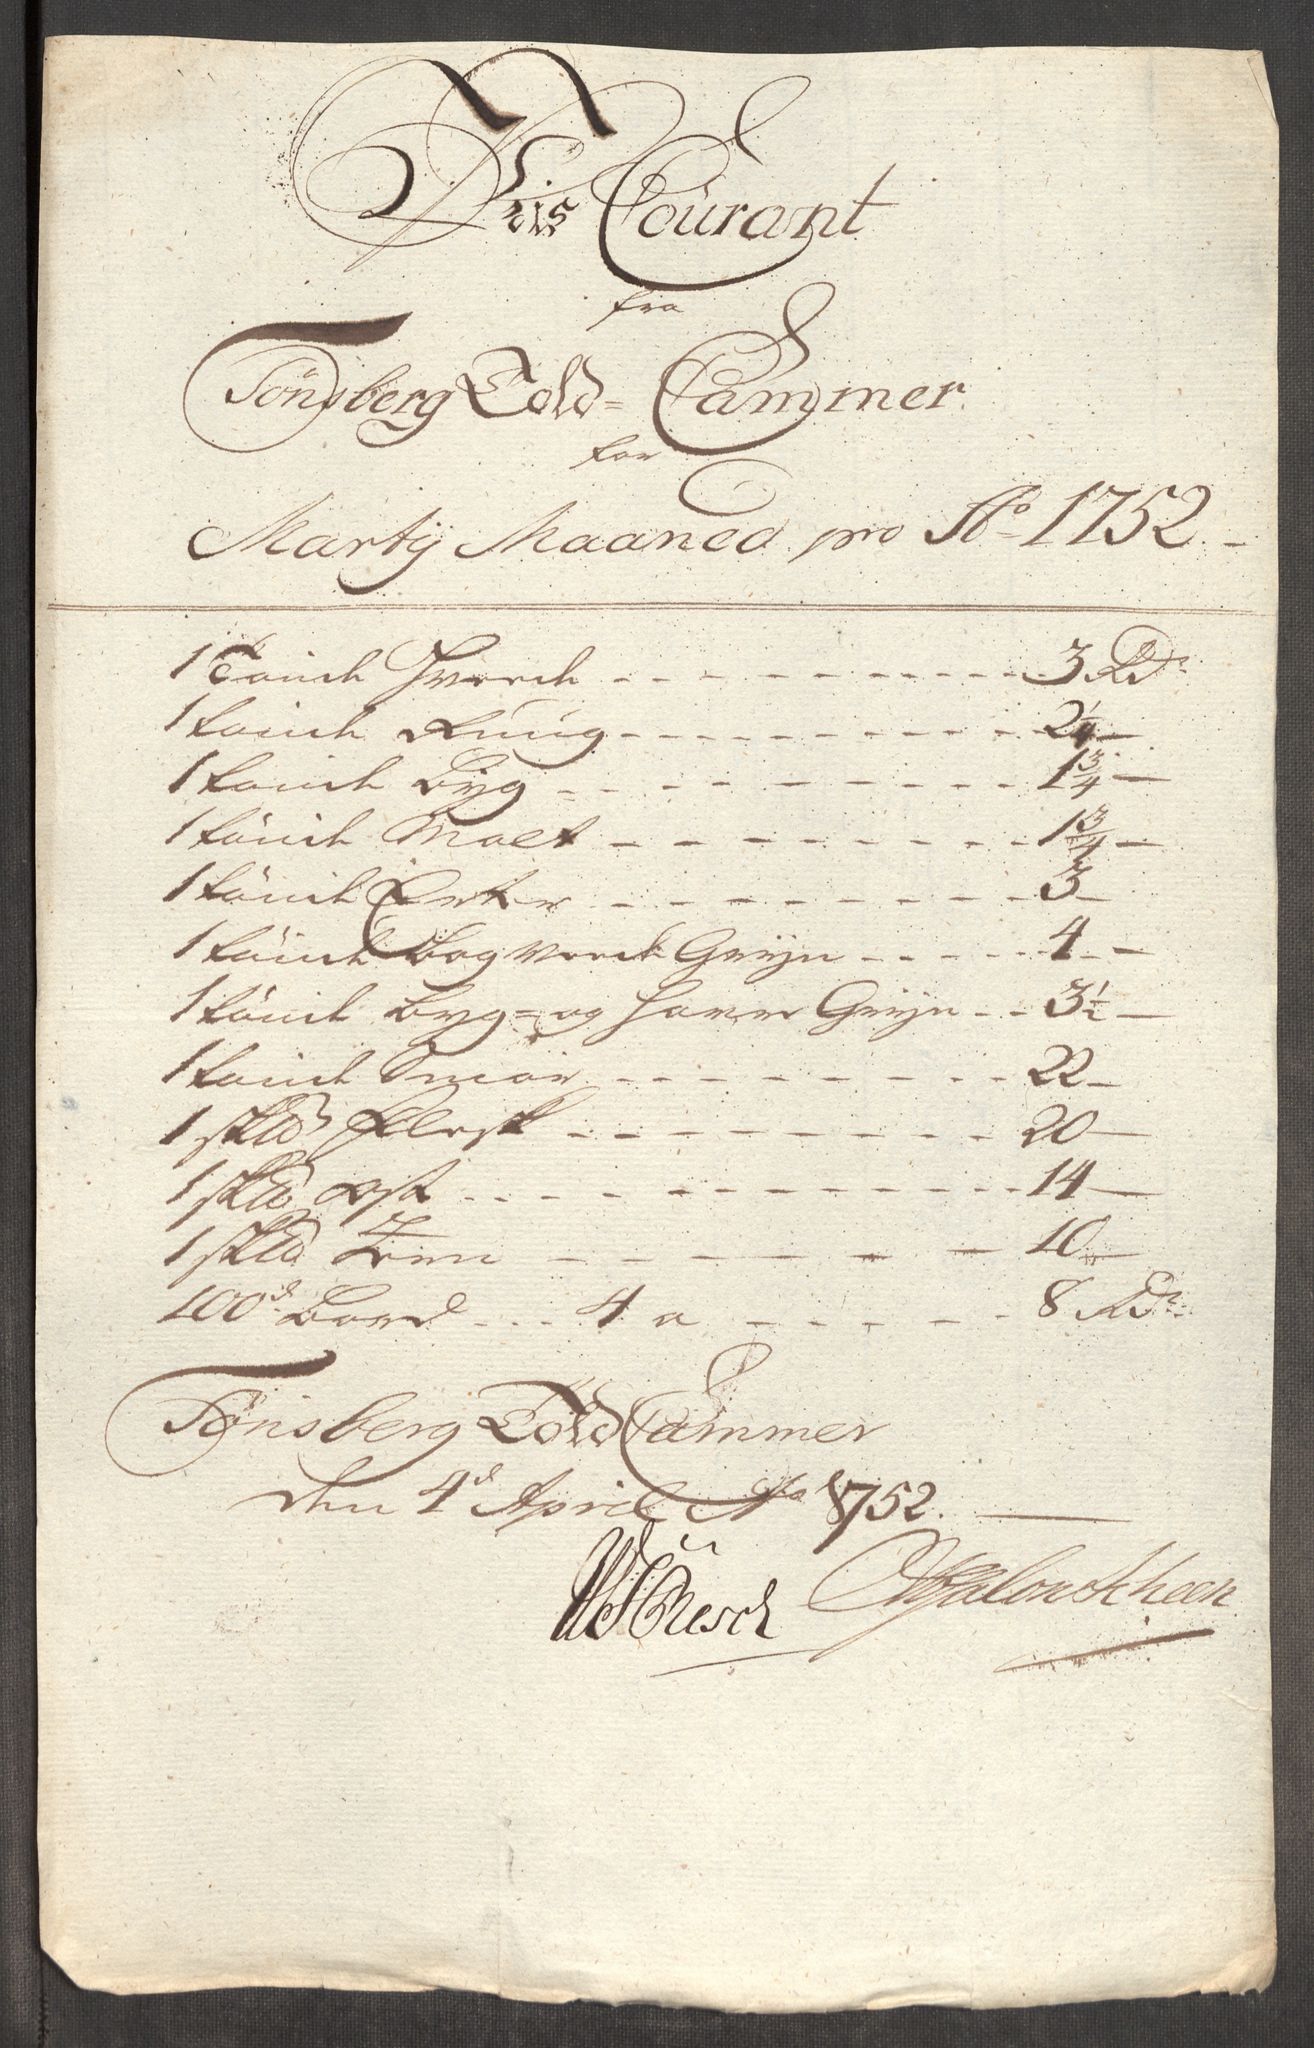 Priis Courant
fra
Tönsberg Told-Cammer
for
Martij Maaned pro Ao 1752.
1 Tönde Hvede 3 Rdr
1 tönde Rug 2 1/4
1 tönde Byg 1 3/4
1 tönde Malt 1 3/4
1 tönde Erter 3
1 tönde Boghvede Gryn 4
1 tönde Byg- og Havre Gryn 3 1/2
1 tönde Smör 22
1 sk℔ Flesk 20
1 sk℔ Ost 14
1 sk℔ 10
100d Bord 4 a 8 Rdr
Tönsberg Told Cammer
den 4d April Ao 1752.